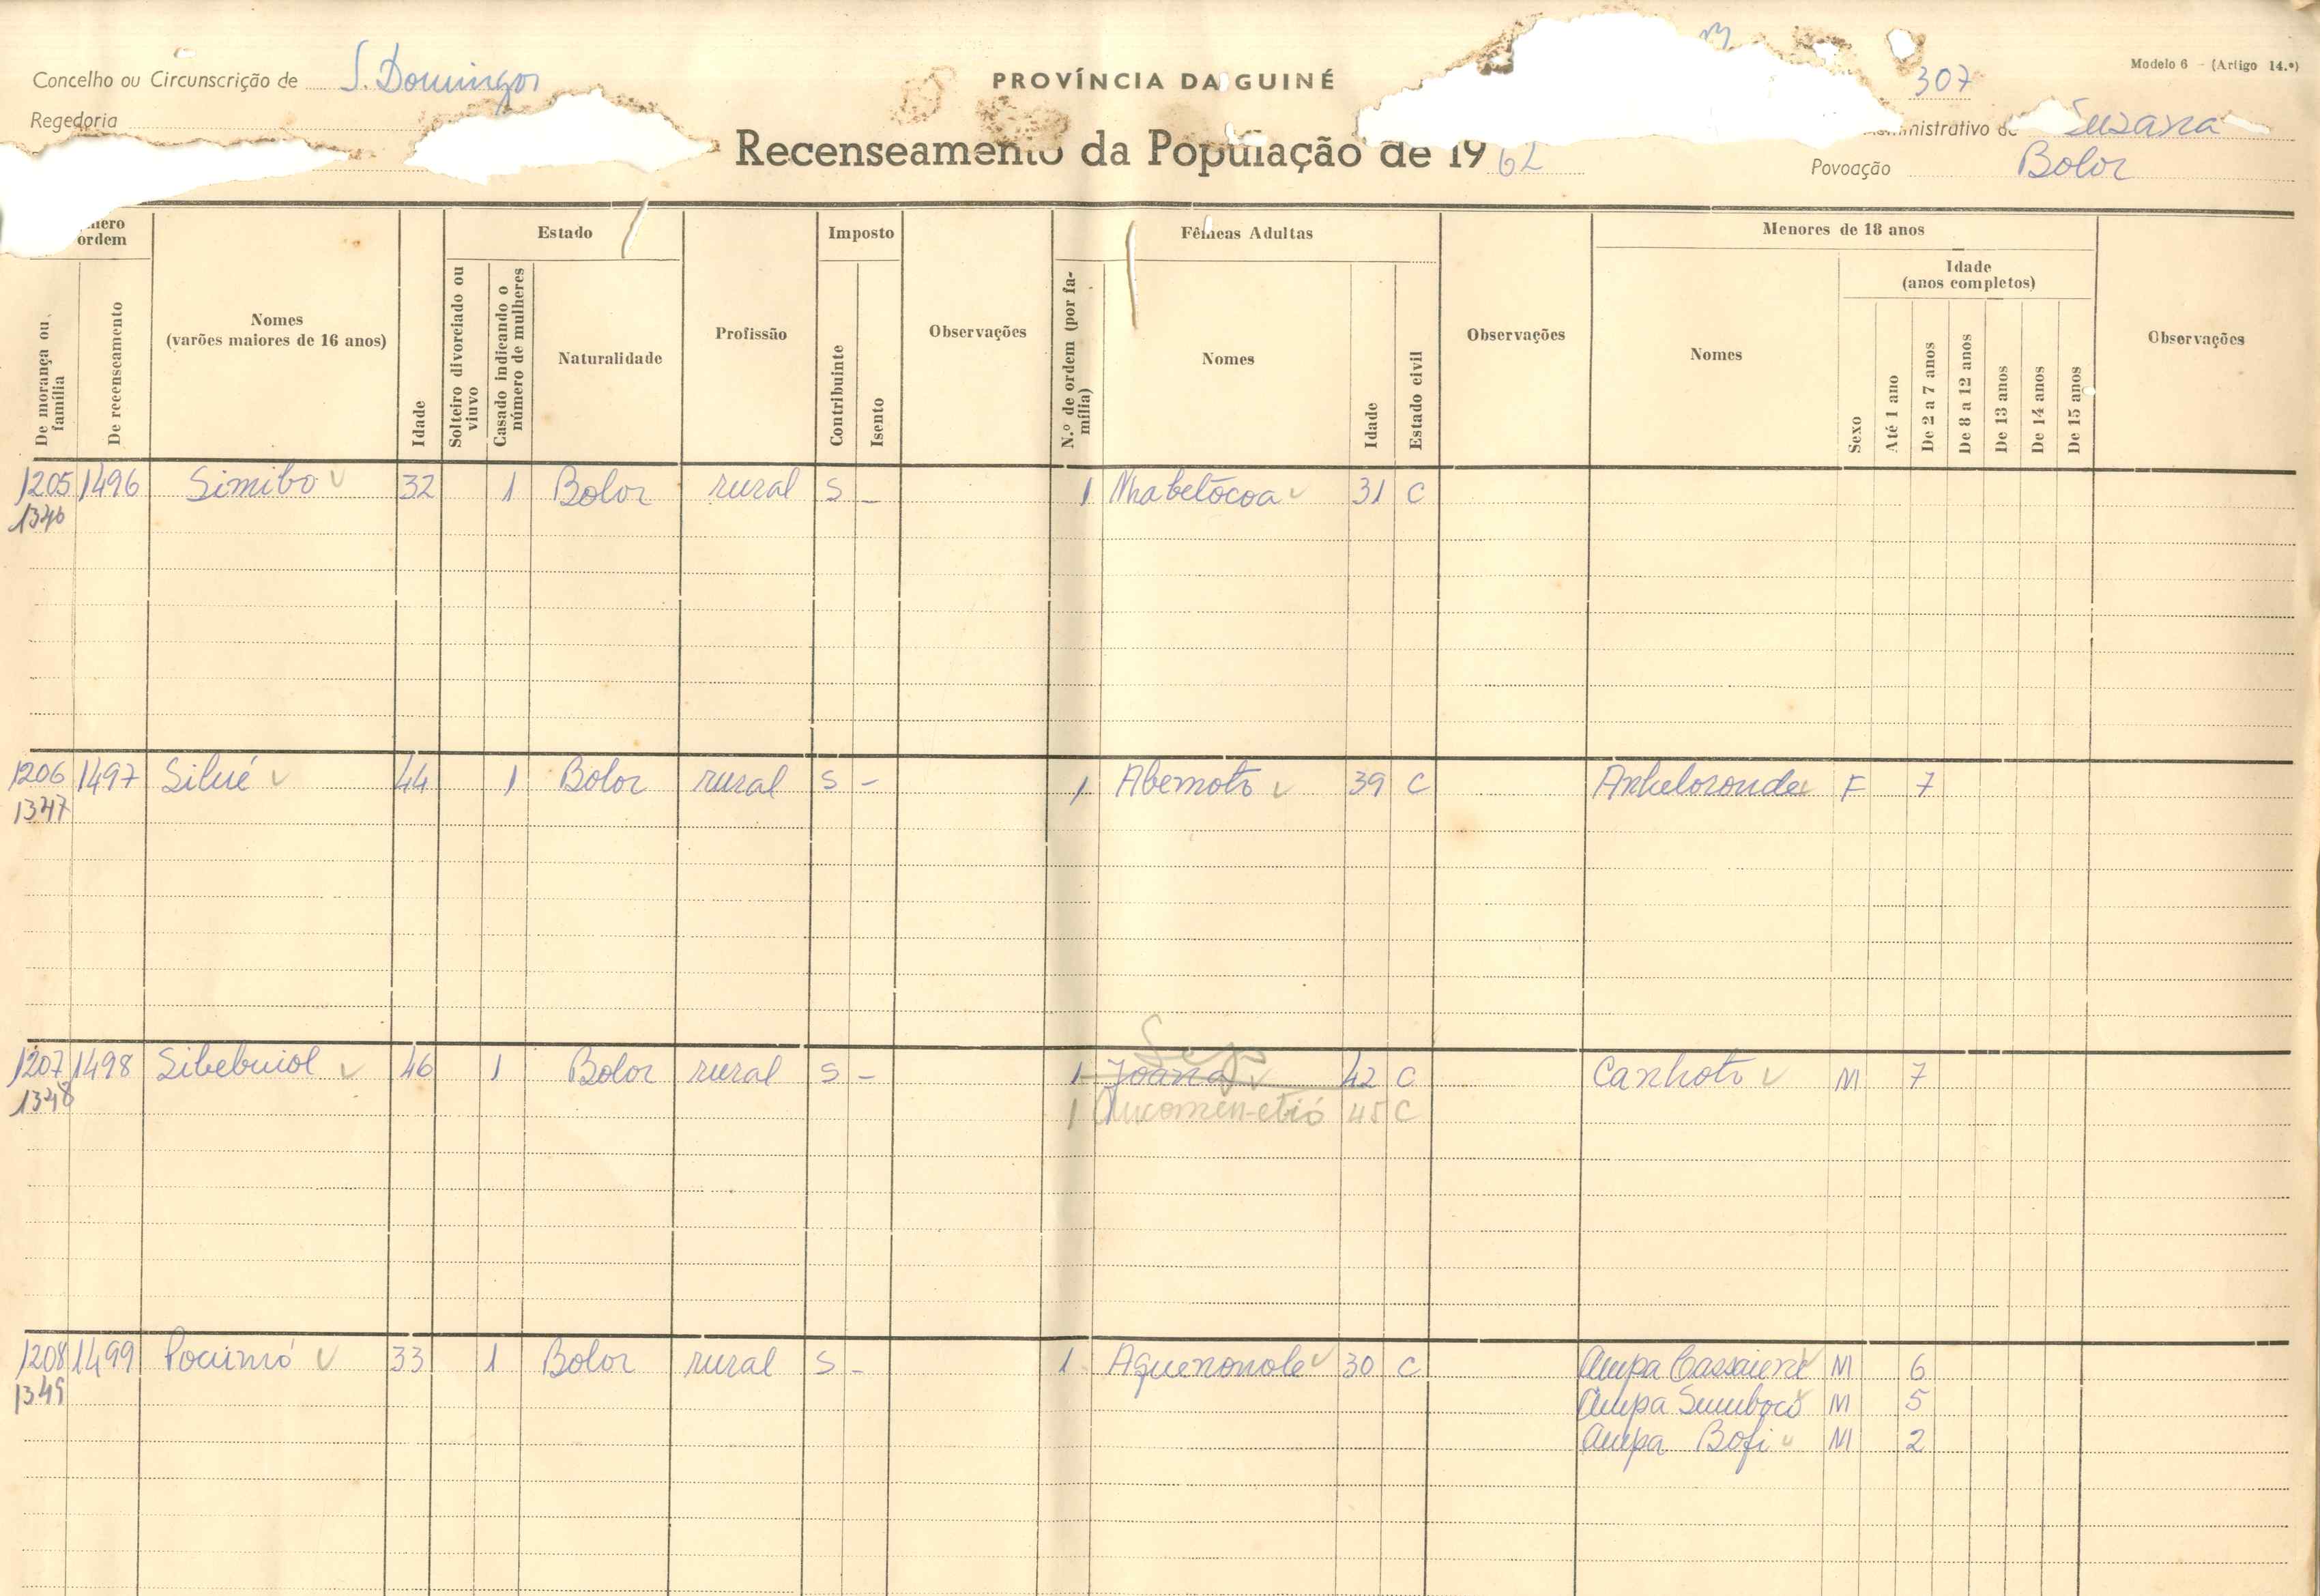 Concelho ou Circunscrição de S. Domingos
PROVÍNCIA DA GUINÉ
307
Modelo 6 - (Artigo 14.º)
Regedoria
Recenseamento da População de 1962
Suzana
Povoação Bolor
ordem
Nomes
(varões maiores de 16 anos)
Idade
Estado
Solteiro divorciado ou viuvo
Casado indicando o número de mulheres
Naturalidade
Profissão
Imposto
Contribuinte
Isento
Observações
Fêmeas Adultas
N.º de ordem (por família)
Nomes
Idade
Estado civil
Observações
Menores de 18 anos
Nomes
Sexo
Idade
(anos completos)
Até 1 ano
De 2 a 7 anos
De 8 a 12 anos
De 13 anos
De 14 anos
De 15 anos
Observações
De morança ou família
De recenseamento
1205 1496 Simibo 32 1 Bolor rural S - 1 Nhabetócoa 31 C
1346
1206 1497 Silué 44 1 Bolor rural S - 1 Abemoto 39 C Anheloronda F 7
1347
1207 1498 Sibebuiol 46 1 Bolor rural S - 1 Joana 42 C Canhoto M 7
1348 1 45 C
1208 1499 Pocumó 33 1 Bolor rural S - 1 Aquenonole 30 C Ampa Cassaiene M 6
1349 Ampa Sumbocó M 5
Ampa Bofi M 2